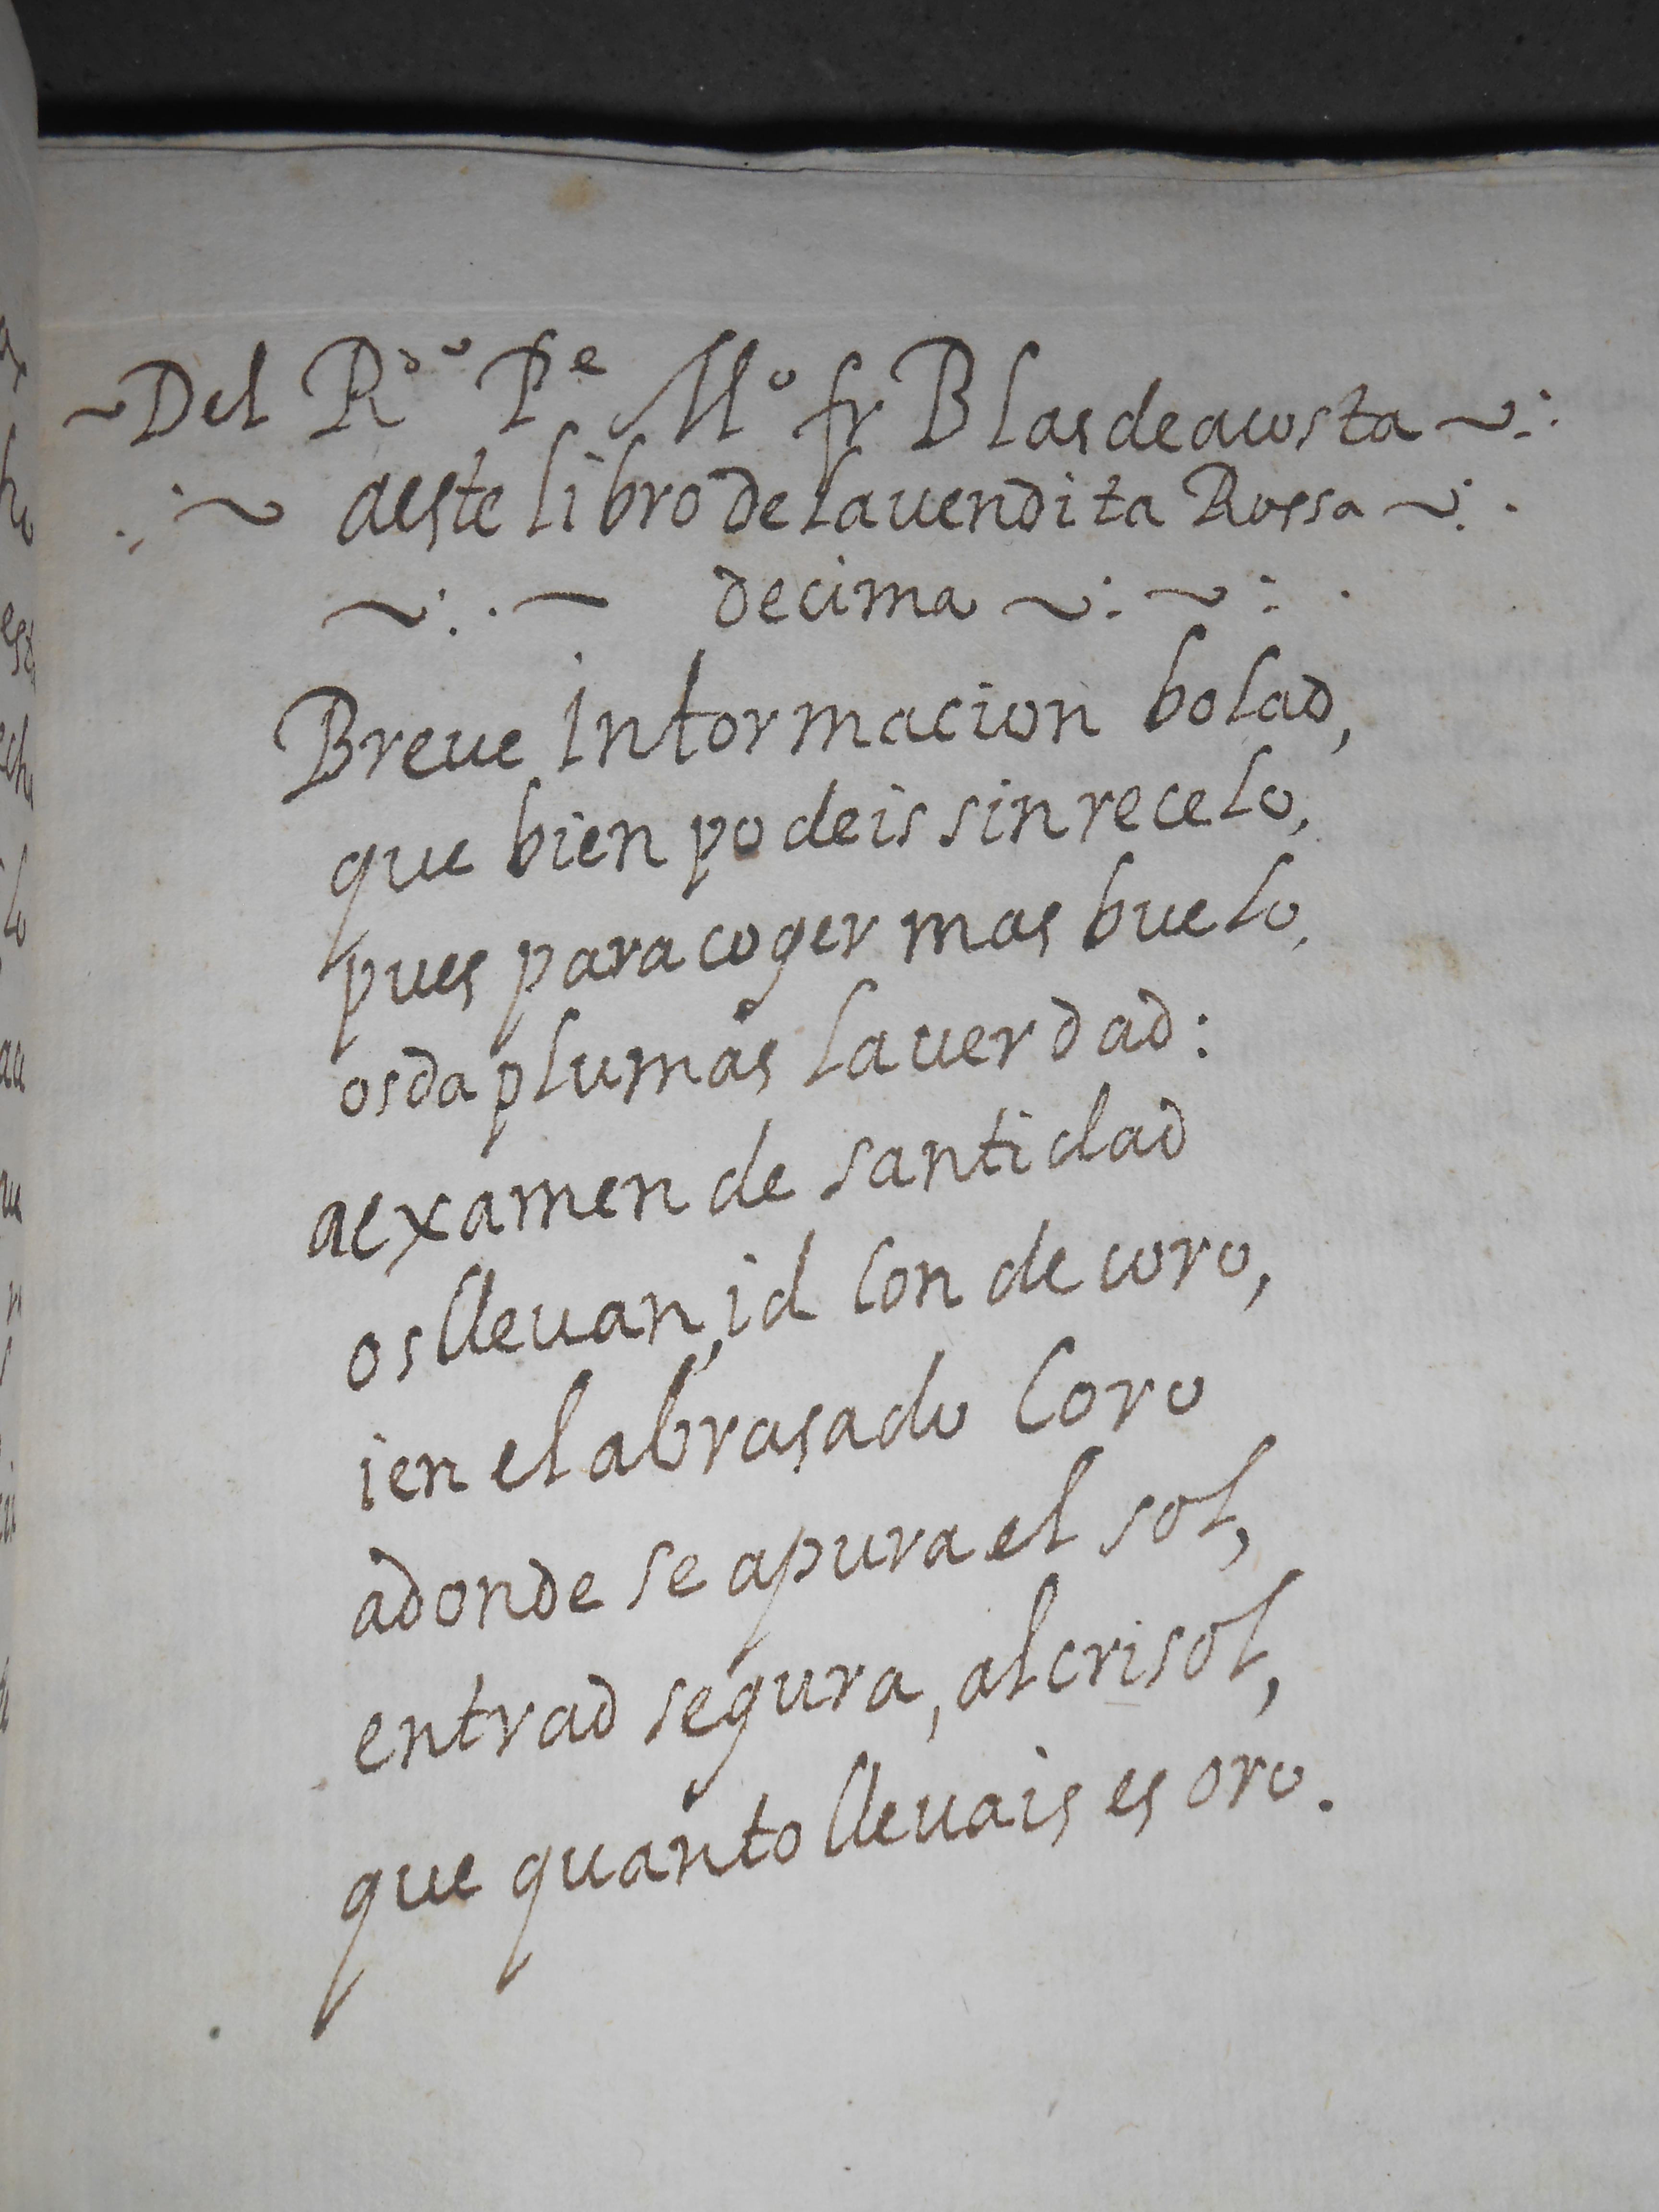 ~Del Rdo Pe Mo fr Blas de acosta ~:·
·:~ aeste libro de la vendita Rossa ~:·
~:·— decima ~:~:·
Breue informacion bolad,
que bien podeis sin recelo,
pues para coger mas buelo,
os da plumas la uerdad:
a examen de santidad
os lleuan, id con decoro,
i en el abrasado coro
adonde se apura el sol,
entrad segura, al crisol,
que quanto lleuais es oro.